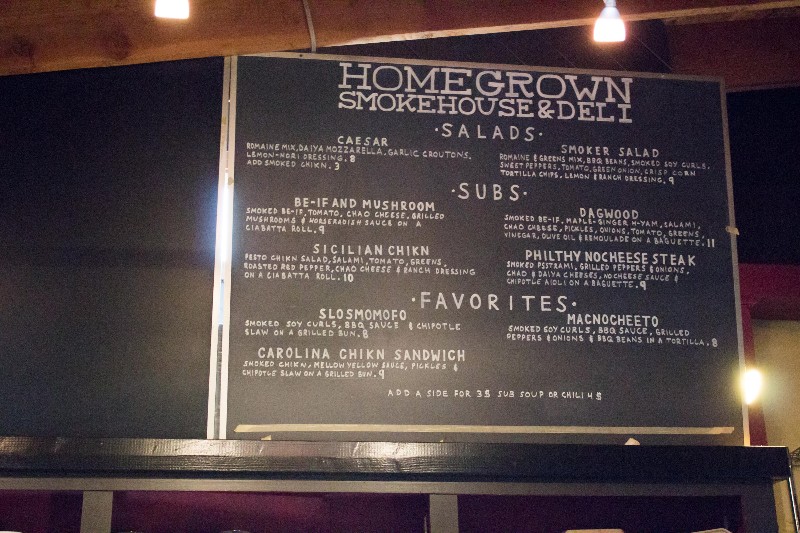 HOMEGROWN
SMOKEHOUSE & DELI
· SALADS ·
CAESAR
ROMAINE MIX, DAIYA MOZZARELLA, GARLIC CROUTONS,
LEMON-NORI DRESSING. 8
ADD SMOKED CHIKN. 3
SMOKER SALAD
ROMAINE & GREENS MIX, BBQ BEANS, SMOKED SOY CURLS,
SWEET PEPPERS, TOMATO, GREEN ONION, CRISP CORN
TORTILLA CHIPS, LEMON & RANCH DRESSING. 9
· SUBS ·
BE-IF AND MUSHROOM
SMOKED BE-IF, TOMATO, CHAO CHEESE, GRILLED
MUSHROOMS & HORSERADISH SAUCE ON A
CIABATTA ROLL. 9
DAGWOOD
SMOKED BE-IF, MAPLE-GINGER H-YAM, SALAMI,
CHAO CHEESE, PICKLES, ONIONS, TOMATO, GREENS,
VINEGAR, OLIVE OIL & REMOULADE ON A BAGUETTE. 11
SICILIAN CHIKN
PESTO CHIKN SALAD, SALAMI, TOMATO, GREENS,
ROASTED RED PEPPER, CHAO CHEESE & RANCH DRESSING
ON A CIABATTA ROLL. 10
PHILTHY NOCHEESE STEAK
SMOKED PSTRAMI, GRILLED PEPPERS & ONIONS,
CHAO & DAIYA CHEESES, NOCHEESE SAUCE &
CHIPOTLE AIOLI ON A BAGUETTE. 9
· FAVORITES ·
SLOSMOMOFO
SMOKED SOY CURLS, BBQ SAUCE & CHIPOTLE
SLAW ON A GRILLED BUN. 8
MACNOCHEETO
SMOKED SOY CURLS, BBQ SAUCE, GRILLED
PEPPERS & ONIONS & BBQ BEANS IN A TORTILLA. 8
CAROLINA CHIKN SANDWICH
SMOKED CHIKN, MELLOW YELLOW SAUCE, PICKLES &
CHIPOTLE SLAW ON A GRILLED BUN. 9
ADD A SIDE FOR 3$ SUB SOUP OR CHILI 4$